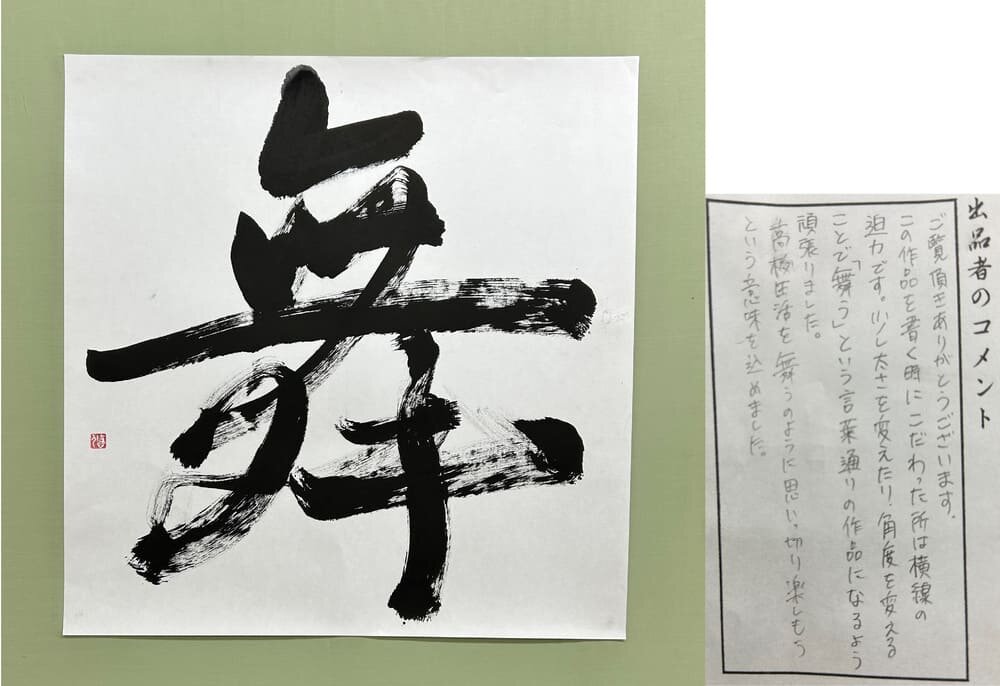 舞
出品者のコメント
ご覧頂きありがとうございます。
この作品を書く時にこだわった所は横線の
迫力です。少し太さを変えたり、角度を変える
ことで「舞う」という言葉通りの作品になるよう
頑張りました。
高校生活を舞うのように思いっ切り楽しもう
という意味を込めました。